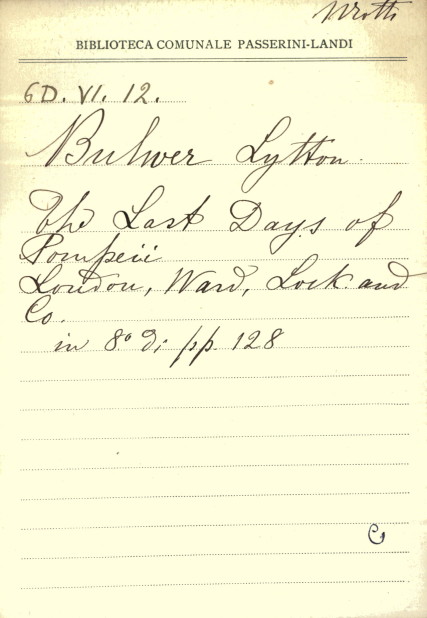 BIBLIOTECA COMUNALE PASSERINI-LANDI
6D. VI. 12.
Bulwer Lytton.
The Last Days of
Pompeii
London, Ward, Lock and
Co.
in 8° di pp. 128